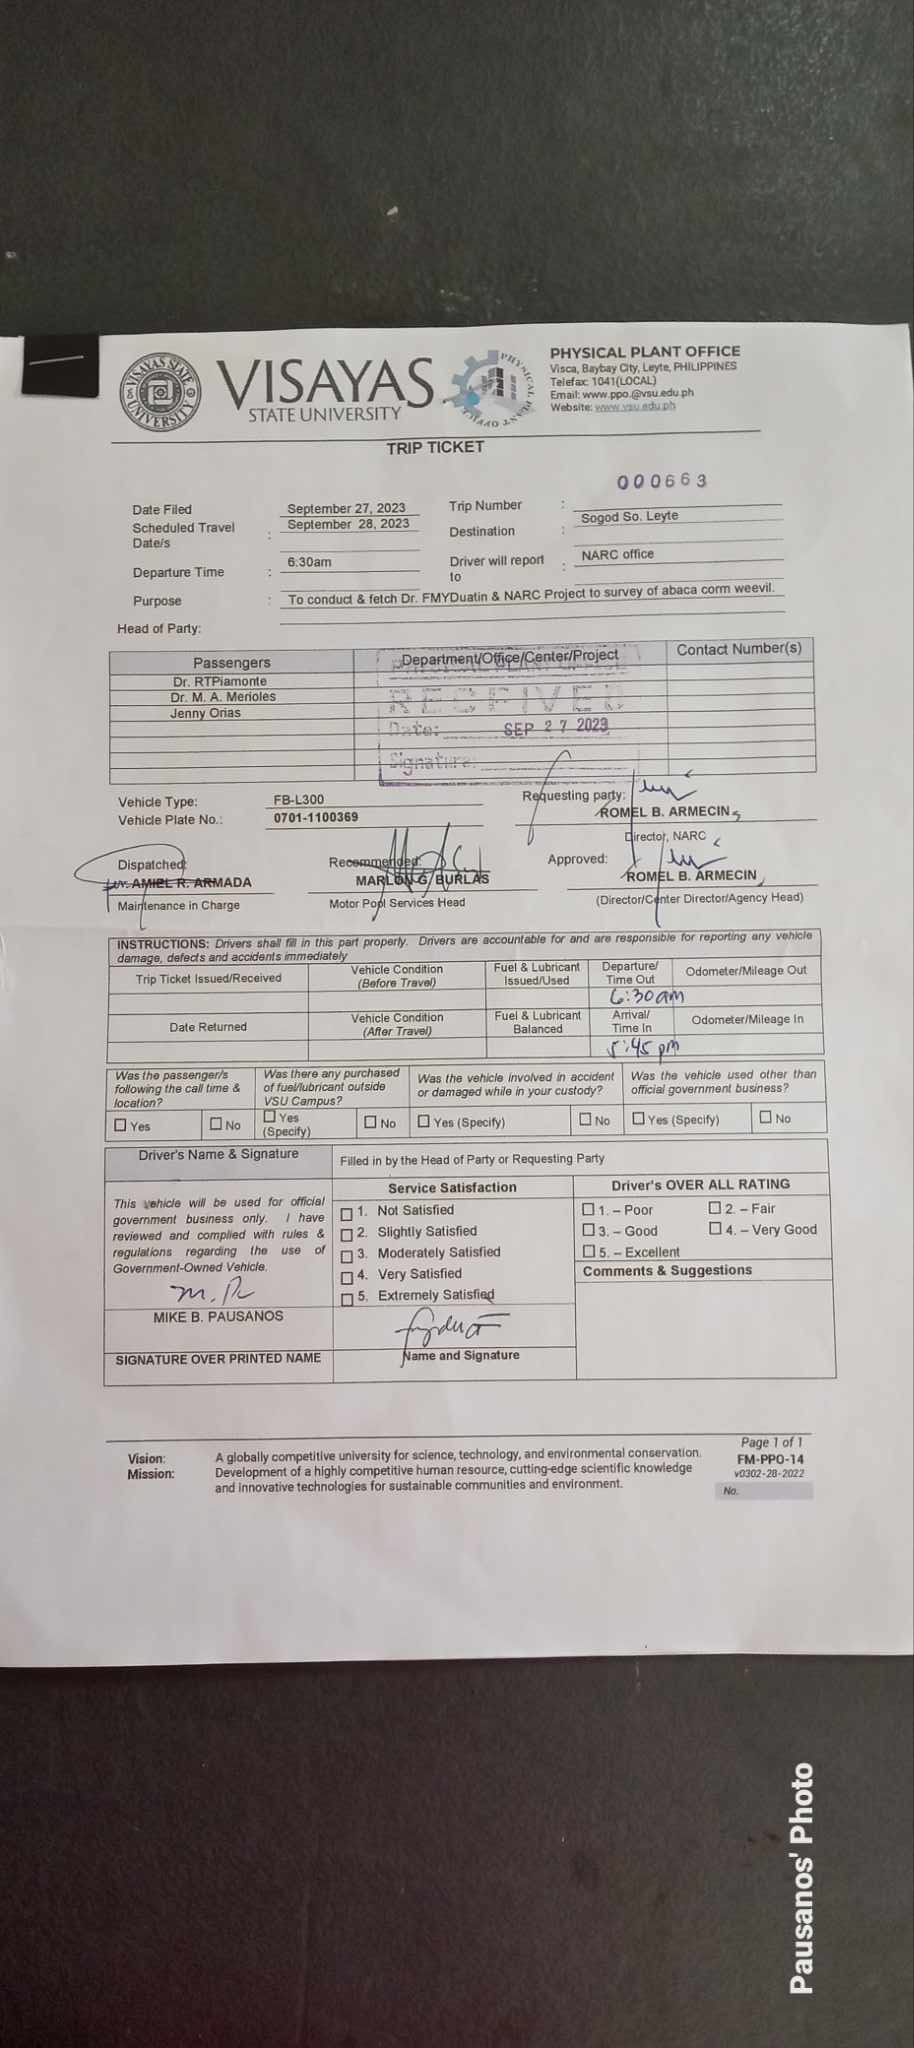 VISAYAS STATE UNIVERSITY
VISAYAS
STATE UNIVERSITY
PHYSICAL PLANT OFFICE
PHYSICAL PLANT OFFICE
Visca, Baybay City, Leyte, PHILIPPINES
Telefax: 1041(LOCAL)
Email: www.ppo.@vsu.edu.ph
Website: www.vsu.edu.ph
TRIP TICKET
000663
Date Filed September 27, 2023 Trip Number :
Scheduled Travel Date/s : September 28, 2023 Destination : Sogod So. Leyte
Departure Time : 6:30am Driver will report to : NARC office
Purpose : To conduct & fetch Dr. FMYDuatin & NARC Project to survey of abaca corm weevil.
Head of Party:
Passengers Department/Office/Center/Project Contact Number(s)
Dr. RTPiamonte
Dr. M. A. Merioles
Jenny Orias
RECEIVED
Date: SEP 27 2023
Signature
Vehicle Type: FB-L300 Requesting party:
Vehicle Plate No.: 0701-1100369 ROMEL B. ARMECIN
Director, NARC
Dispatched: Recommended: Approved:
AMIEL R. ARMADA MARLON G. BURLAS ROMEL B. ARMECIN
Maintenance in Charge Motor Pool Services Head (Director/Center Director/Agency Head)
INSTRUCTIONS: Drivers shall fill in this part properly. Drivers are accountable for and are responsible for reporting any vehicle
damage, defects and accidents immediately
Trip Ticket Issued/Received Vehicle Condition (Before Travel) Fuel & Lubricant Issued/Used Departure/ Time Out Odometer/Mileage Out
6:30am
Date Returned Vehicle Condition (After Travel) Fuel & Lubricant Balanced Arrival/ Time In Odometer/Mileage In
5:45 pm
Was the passenger/s following the call time & location? Was there any purchased of fuel/lubricant outside VSU Campus? Was the vehicle involved in accident or damaged while in your custody? Was the vehicle used other than official government business?
Yes No Yes (Specify) No Yes (Specify) No Yes (Specify) No
Driver's Name & Signature Filled in by the Head of Party or Requesting Party
Service Satisfaction Driver's OVER ALL RATING
This vehicle will be used for official
government business only. I have
reviewed and complied with rules &
regulations regarding the use of
Government-Owned Vehicle.
MIKE B. PAUSANOS
SIGNATURE OVER PRINTED NAME
1. Not Satisfied
2. Slightly Satisfied
3. Moderately Satisfied
4. Very Satisfied
5. Extremely Satisfied
Name and Signature
1. – Poor 2. – Fair
3. – Good 4. – Very Good
5. – Excellent
Comments & Suggestions
Vision: A globally competitive university for science, technology, and environmental conservation.
Mission: Development of a highly competitive human resource, cutting-edge scientific knowledge
and innovative technologies for sustainable communities and environment.
Page 1 of 1
FM-PPO-14
v0302-28-2022
No.
Pausanos' Photo